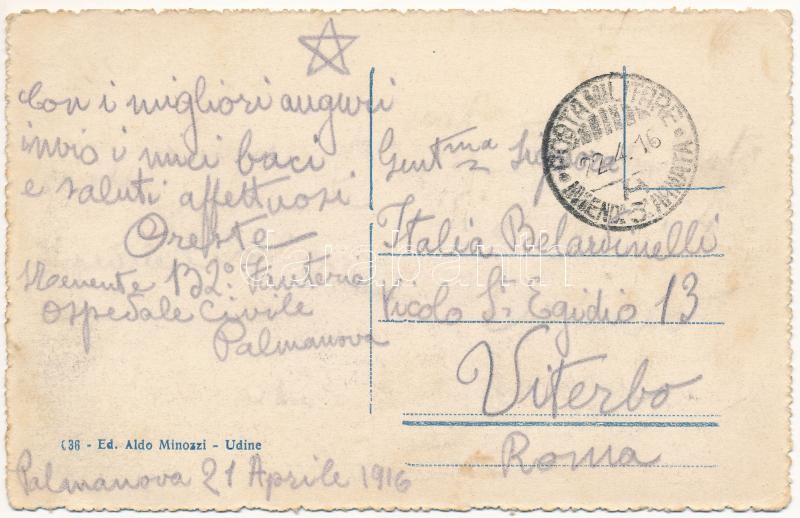 Con i migliori auguri
invio i miei baci
e saluti affettuosi
Oreste
132º Fanteria
Ospedale Civile
Palmanova
636 - Ed. Aldo Minozzi - Udine
Palmanova 21 Aprile 1916
POSTA MILITARE
INTENDZA 3ª ARMATA
4. 16
Gentma Sig
Italia Belardinelli
Vicolo St Egidio 13
Viterbo
Roma
darabanth